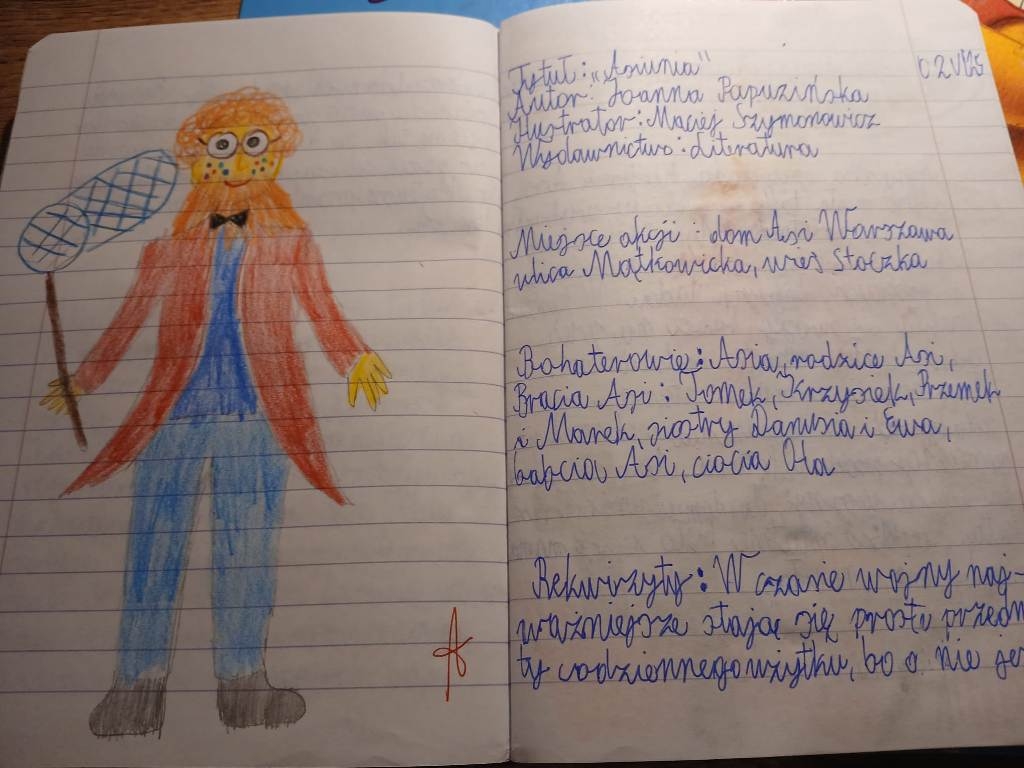 02 VI 25
Tytuł: „Asiunia"
Autor: Joanna Papuzińska
Ilustrator: Maciej Szymonowicz
Wydawnictwo: Literatura
Miejsce akcji: dom Asi Warszawa
ulica Mątkowicka, wieś Stoczka
Bohaterowie: Asia, rodzice Asi,
Bracia Asi: Tomek, Krzysiek, Przemek
i Marek, siostry Danusia i Ewa,
babcia Asi, ciocia Ola
Rekwizyty: W czasie wojny naj-
ważniejsze stają się proste przedm
ty codziennego użytku, bo o nie